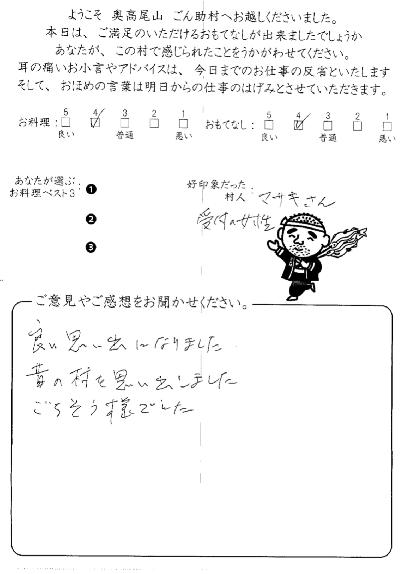 ようこそ 奥高尾山 ごん助村へお越しくださいました。
本日は、ご満足のいただけるおもてなしが出来ましたでしょうか
あなたが、この村で感じられたことをうかがわせてください。
耳の痛いお小言やアドバイスは、今日までのお仕事の反省といたします
そして、おほめの言葉は明日からの仕事のはげみとさせていただきます。
お料理: 5 4 3 2 1 おもてなし: 5 4 3 2 1
良い 普通 悪い 良い 普通 悪い
あなたが選ぶ お料理ベスト3: ❶
❷
❸
好印象だった 村人: マサキさん
受付の女性
ご意見やご感想をお聞かせください。
良い思い出になりました
昔の村を思い出しました
ごちそう様でした